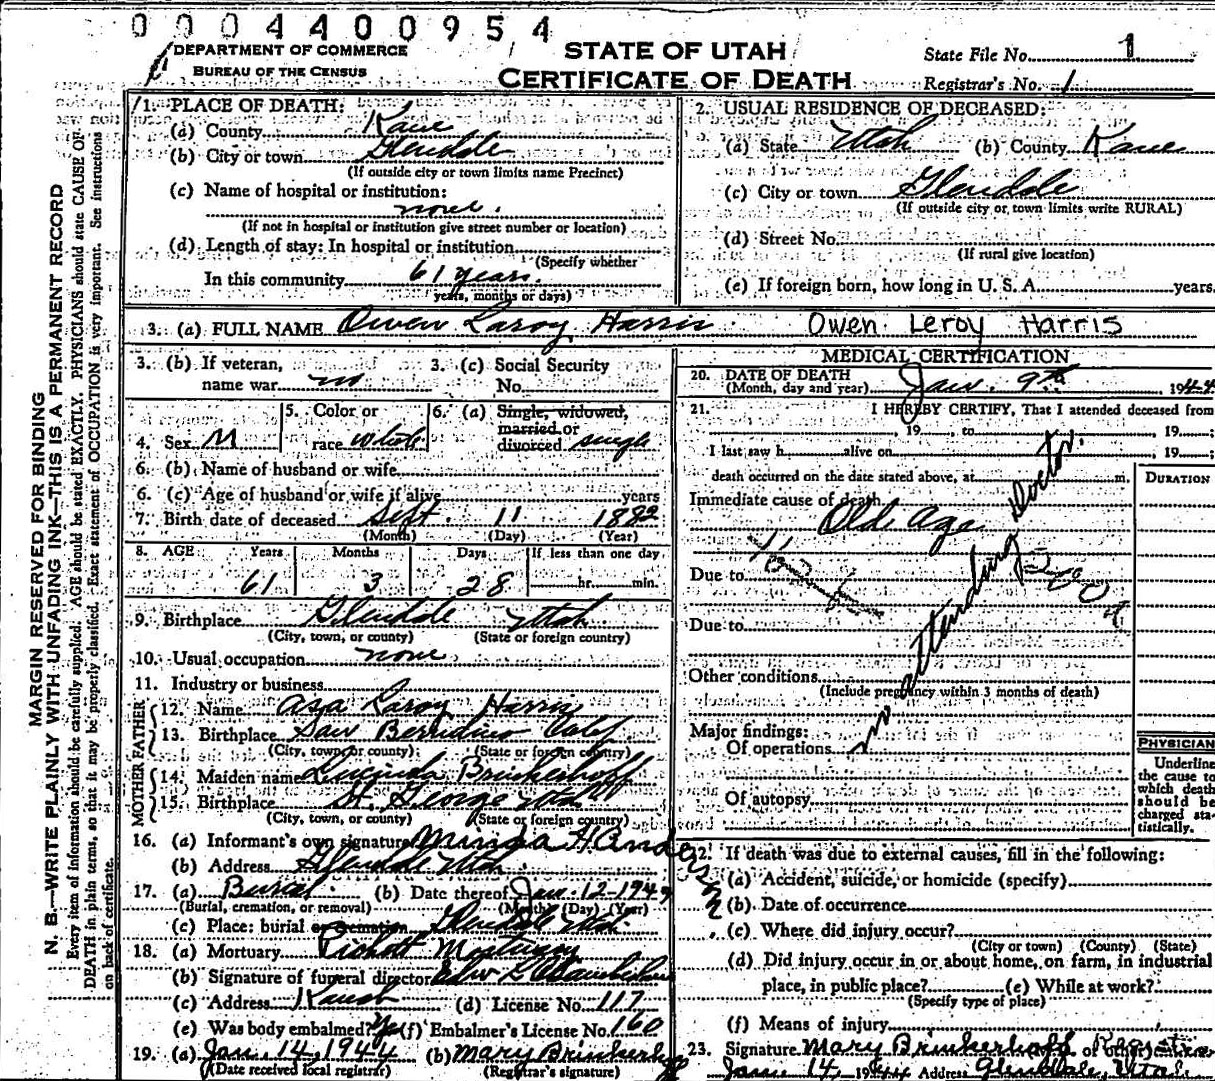 0004400954
DEPARTMENT OF COMMERCE
BUREAU OF THE CENSUS
STATE OF UTAH
CERTIFICATE OF DEATH
State File No. 1
Registrar's No. 1
MARGIN RESERVED FOR BINDING
N. B.—WRITE PLAINLY WITH UNFADING INK—THIS IS A PERMANENT RECORD
Every item of information should be carefully supplied. AGE should be stated EXACTLY. PHYSICIANS should state CAUSE OF
DEATH in plain terms, so that it may be properly classified. Exact statement of OCCUPATION is very important. See instructions
on back of certificate.
1. PLACE OF DEATH:
(a) County Kane
(b) City or town Glendale
(If outside city or town limits name Precinct)
(c) Name of hospital or institution:
none.
(If not in hospital or institution give street number or location)
(d) Length of stay: In hospital or institution
(Specify whether
In this community 61 years.
years, months or days)
2. USUAL RESIDENCE OF DECEASED:
(a) State Utah (b) County Kane
(c) City or town Glendale
(If outside city or town limits write RURAL)
(d) Street No.
(If rural give location)
(e) If foreign born, how long in U. S. A. years.
3. (a) FULL NAME Owen Laroy Harris Owen Leroy Harris
3. (b) If veteran,
name war no
3. (c) Social Security
No.
4. Sex M
5. Color or
race white
6. (a) Single, widowed,
married or
divorced single
6. (b) Name of husband or wife
6. (c) Age of husband or wife if alive years
7. Birth date of deceased Sept. 11 1882
(Month) (Day) (Year)
8. AGE Years Months Days If less than one day
61 3 28 hr. min.
9. Birthplace Glendale Utah
(City, town, or county) (State or foreign country)
10. Usual occupation none
11. Industry or business
FATHER
12. Name Asa Laroy Harris
13. Birthplace San Berridino Calif
(City, town, or county) (State or foreign country)
MOTHER
14. Maiden name Lucinda Brinkerhoff
15. Birthplace St. George Utah
(City, town, or county) (State or foreign country)
16. (a) Informant's own signature Minda H Anderson
(b) Address Glendale Utah
17. (a) Burial (b) Date thereof Jan. 12-1944
(Burial, cremation, or removal) (Month) (Day) (Year)
(c) Place: burial or cremation Glendale Utah.
18. (a) Mortuary Mortuary
(b) Signature of funeral director
(c) Address Kanab (d) License No. 117
(e) Was body embalmed? (f) Embalmer's License No. 160
19. (a) Jan. 14, 1944 (b) Mary Brinkerhoff
(Date received local registrar) (Registrar's signature)
MEDICAL CERTIFICATION
20. DATE OF DEATH
(Month, day and year) Jan. 9th 1944
21. I HEREBY CERTIFY, That I attended deceased from
19 , to , 19 ;
I last saw h alive on , 19 ;
death occurred on the date stated above, at m.
DURATION
Immediate cause of death
Old Age
Due to
Due to
no attending doctor.
Other conditions
(Include pregnancy within 3 months of death)
Major findings:
Of operations
Of autopsy
PHYSICIAN
Underline
the cause to
which death
should be
charged sta-
tistically.
22. If death was due to external causes, fill in the following:
(a) Accident, suicide, or homicide (specify)
(b) Date of occurrence
(c) Where did injury occur?
(City or town) (County) (State)
(d) Did injury occur in or about home, on farm, in industrial
place, in public place? (e) While at work?
(Specify type of place)
(f) Means of injury
23. Signature Mary Brinkerhoff
Jan. 14, 1944 Address Glendale, Utah